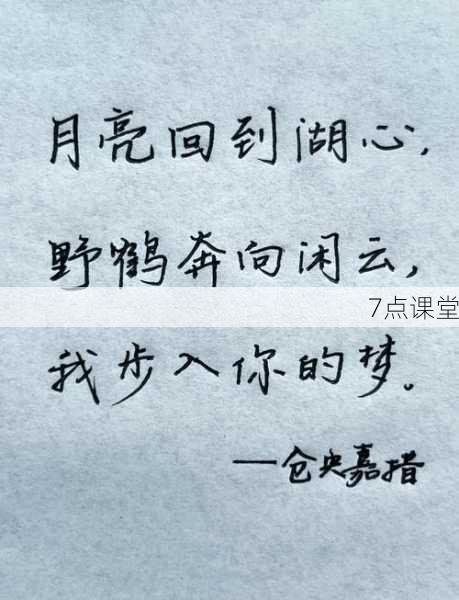 月亮回到湖心,
野鹤奔向闲云,
7点课堂
我步入你的梦。
—仓央嘉措